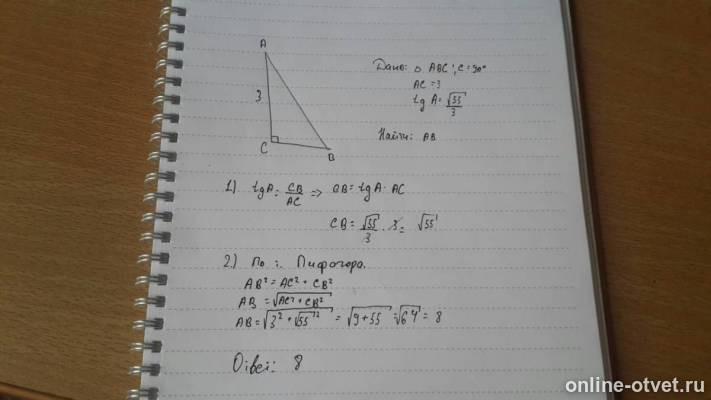 A
3
C
B
Дано: △ ABC; C = 90°
AC = 3
tg A = √55/3
Найти: AB
1) tg A = CB/AC => CB = tg A · AC
CB = √55/3 · 3 = √55
2.) По т. Пифагора.
AB² = AC² + CB²
AB = √AC² + CB²
AB = √3² + √55² = √9 + 55 = √64 = 8
Ответ: 8
online-otvet.ru